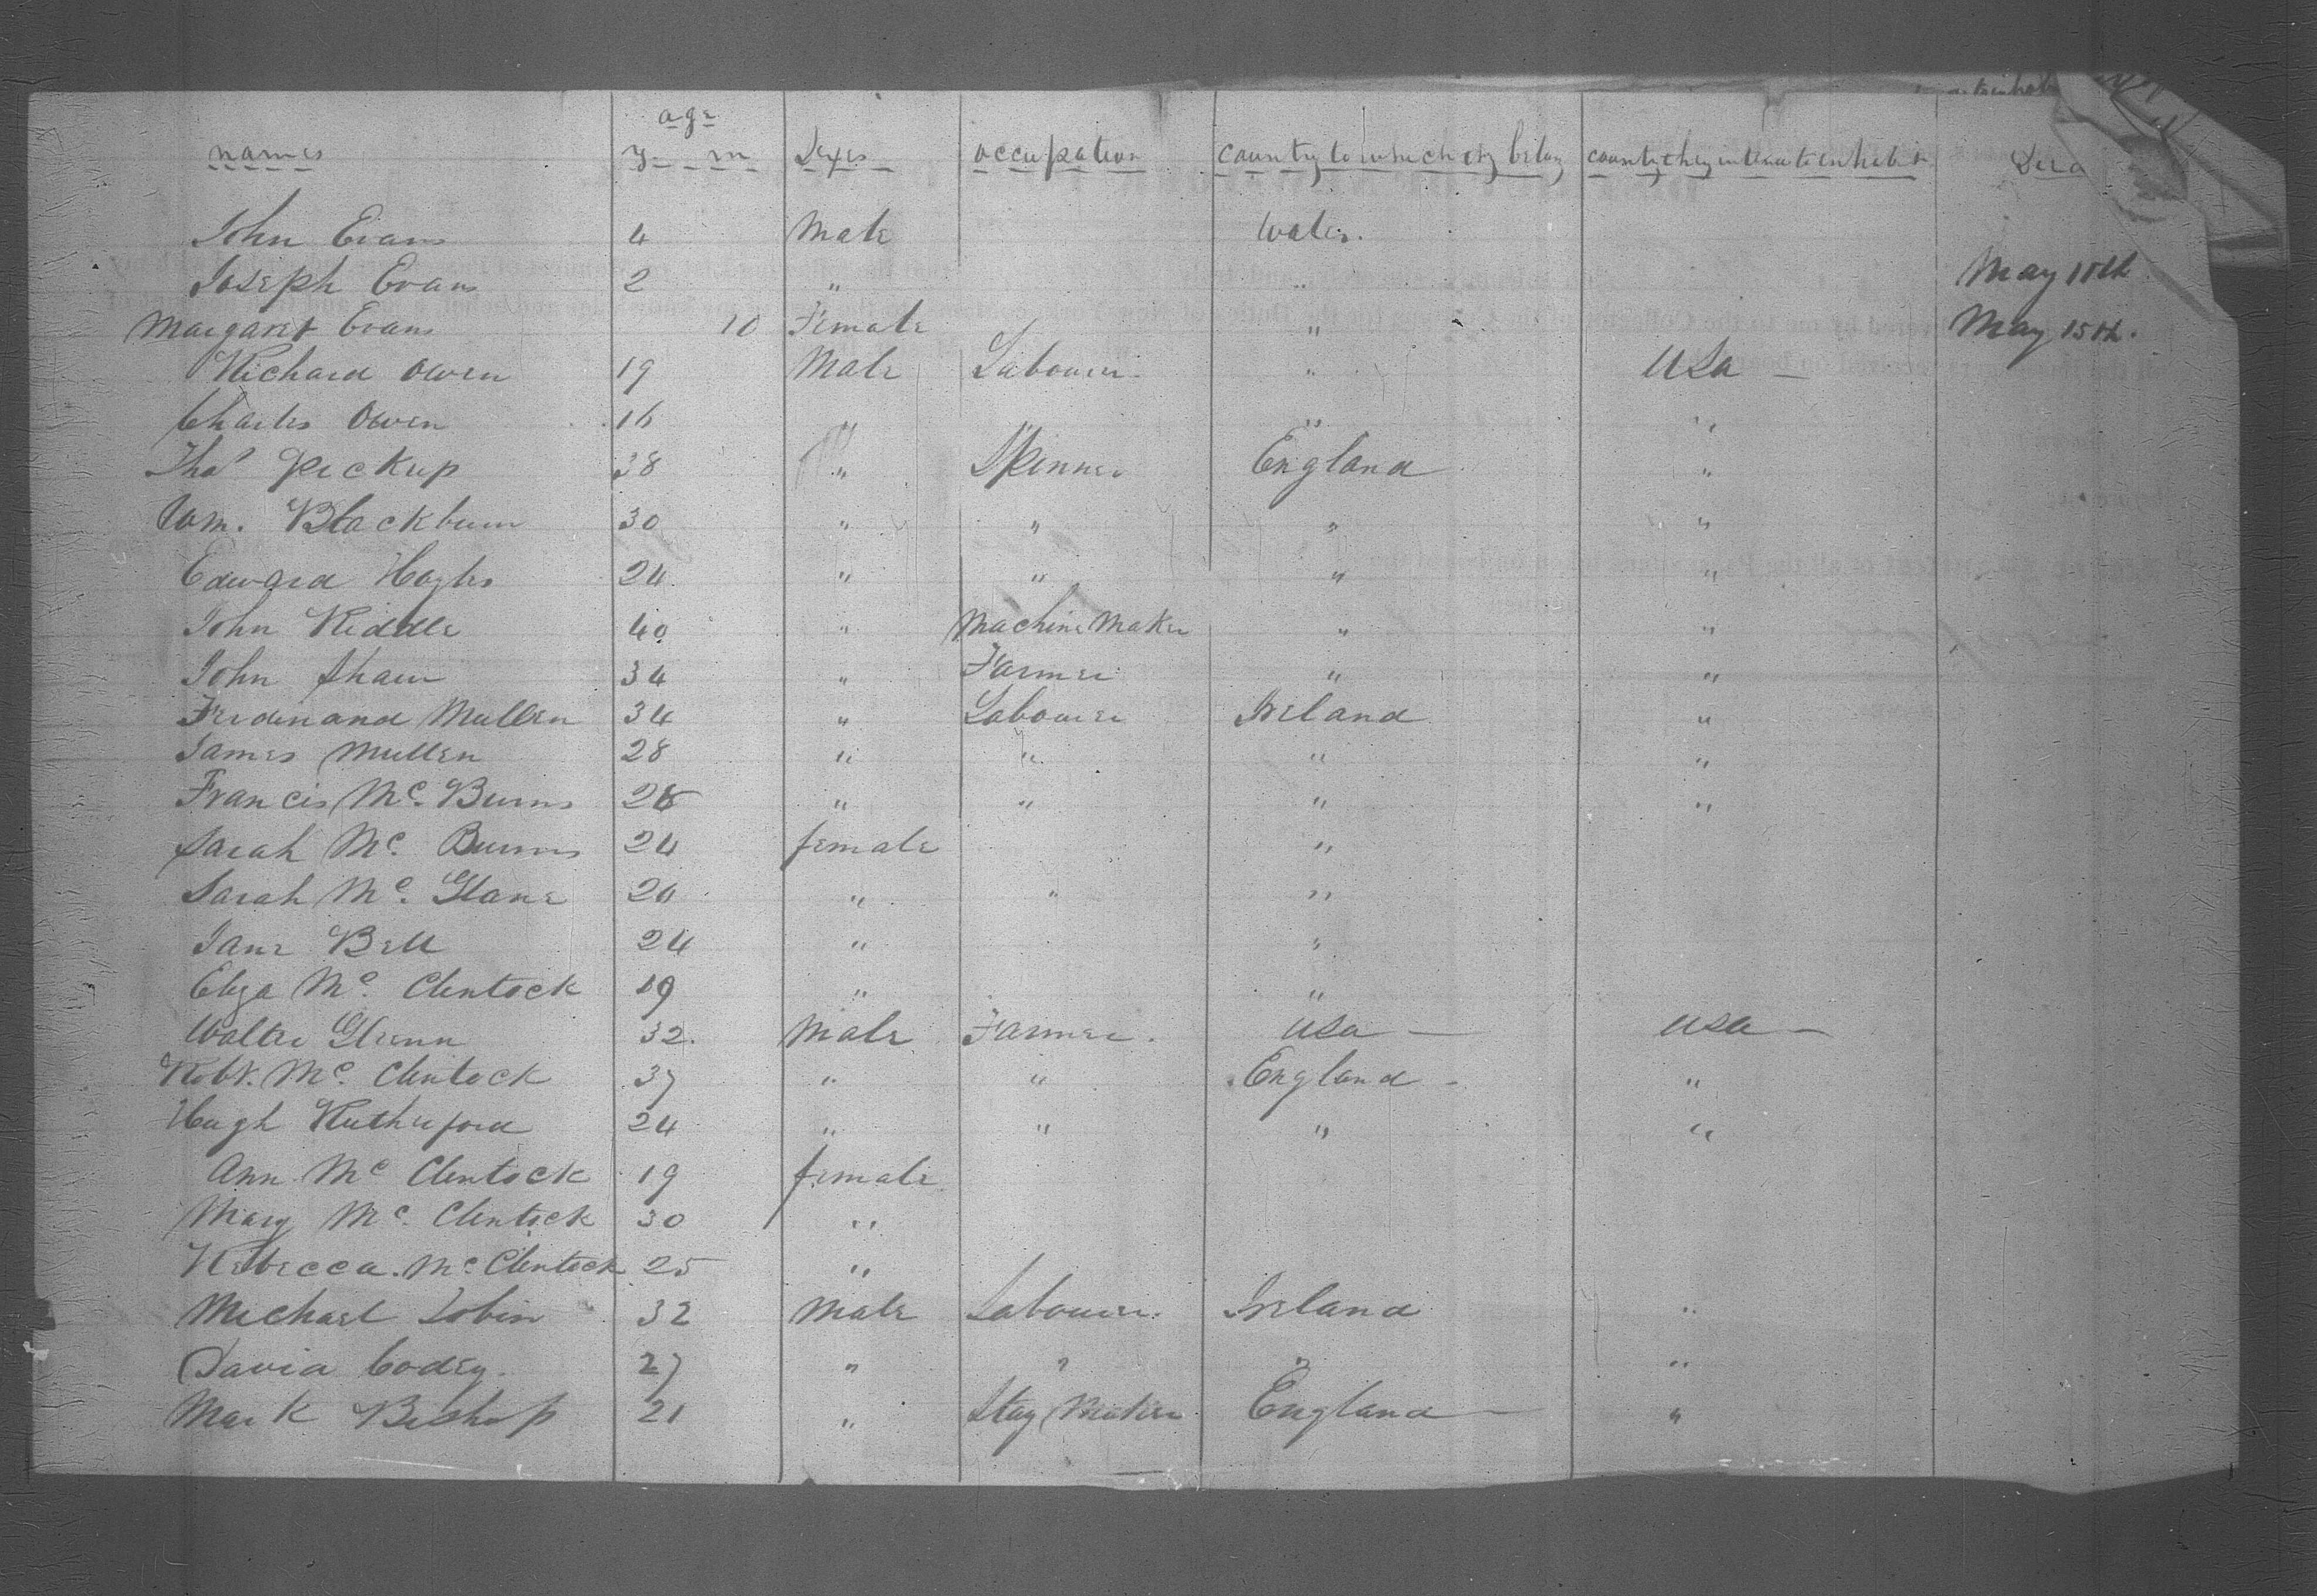 age
names y m Sexes occupation country to which they belong country they intend to inhabit
John Evans 4 Male Wales.
Joseph Evans 2 " " May 10th
Margaret Evans 10 Female " May 15th.
Richard Owen 19 Male Labourer " USa —
Charles Owen 16 " " " "
Thos Pickup 38 " Spinner England "
Wm. Blackburn 30 " " " "
Edward Hoyles 24 " " " "
John Riddle 40 " Machine Maker " "
John Shaw 34 " Farmer " "
Ferdinand Mullen 34 " Labourer Ireland "
James Mullen 28 " " " "
Francis Mc. Burns 28 " " " "
Sarah Mc. Burns 24 female "
Sarah Mc. Glane 20 " " "
Jane Bell 24 " "
Eliza Mc. Clintock 19 " "
Walter Glenn 32. Male Farmer. USa — USa —
Robt. Mc. Clintock 37 " " England - "
Hugh Rutherford 24 " " " "
Ann Mc Clintock 19 female
Mary Mc. Clintock 30 "
Rebecca. Mc Clintock 25 "
Michael Tobin 32 Male Labourer. Ireland "
David Codey. 27 " " " "
Mark Bishop 21 " Stay Maker England — "